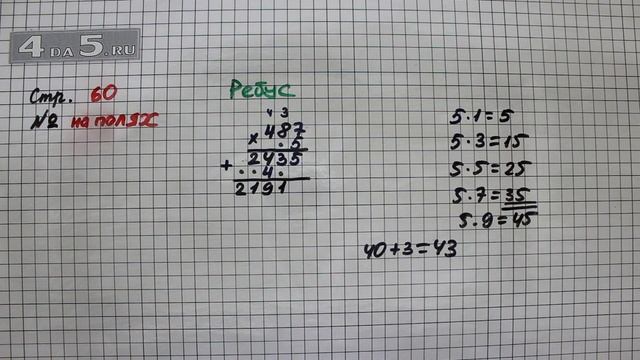 4DA5.RU
Стр. 60
№ на полях
Ребус
4 3
× 487
· 5
+ 2435
· · 4 ·
2191
5 · 1 = 5
5 · 3 = 15
5 · 5 = 25
5 · 7 = 35
5 · 9 = 45
40 + 3 = 43